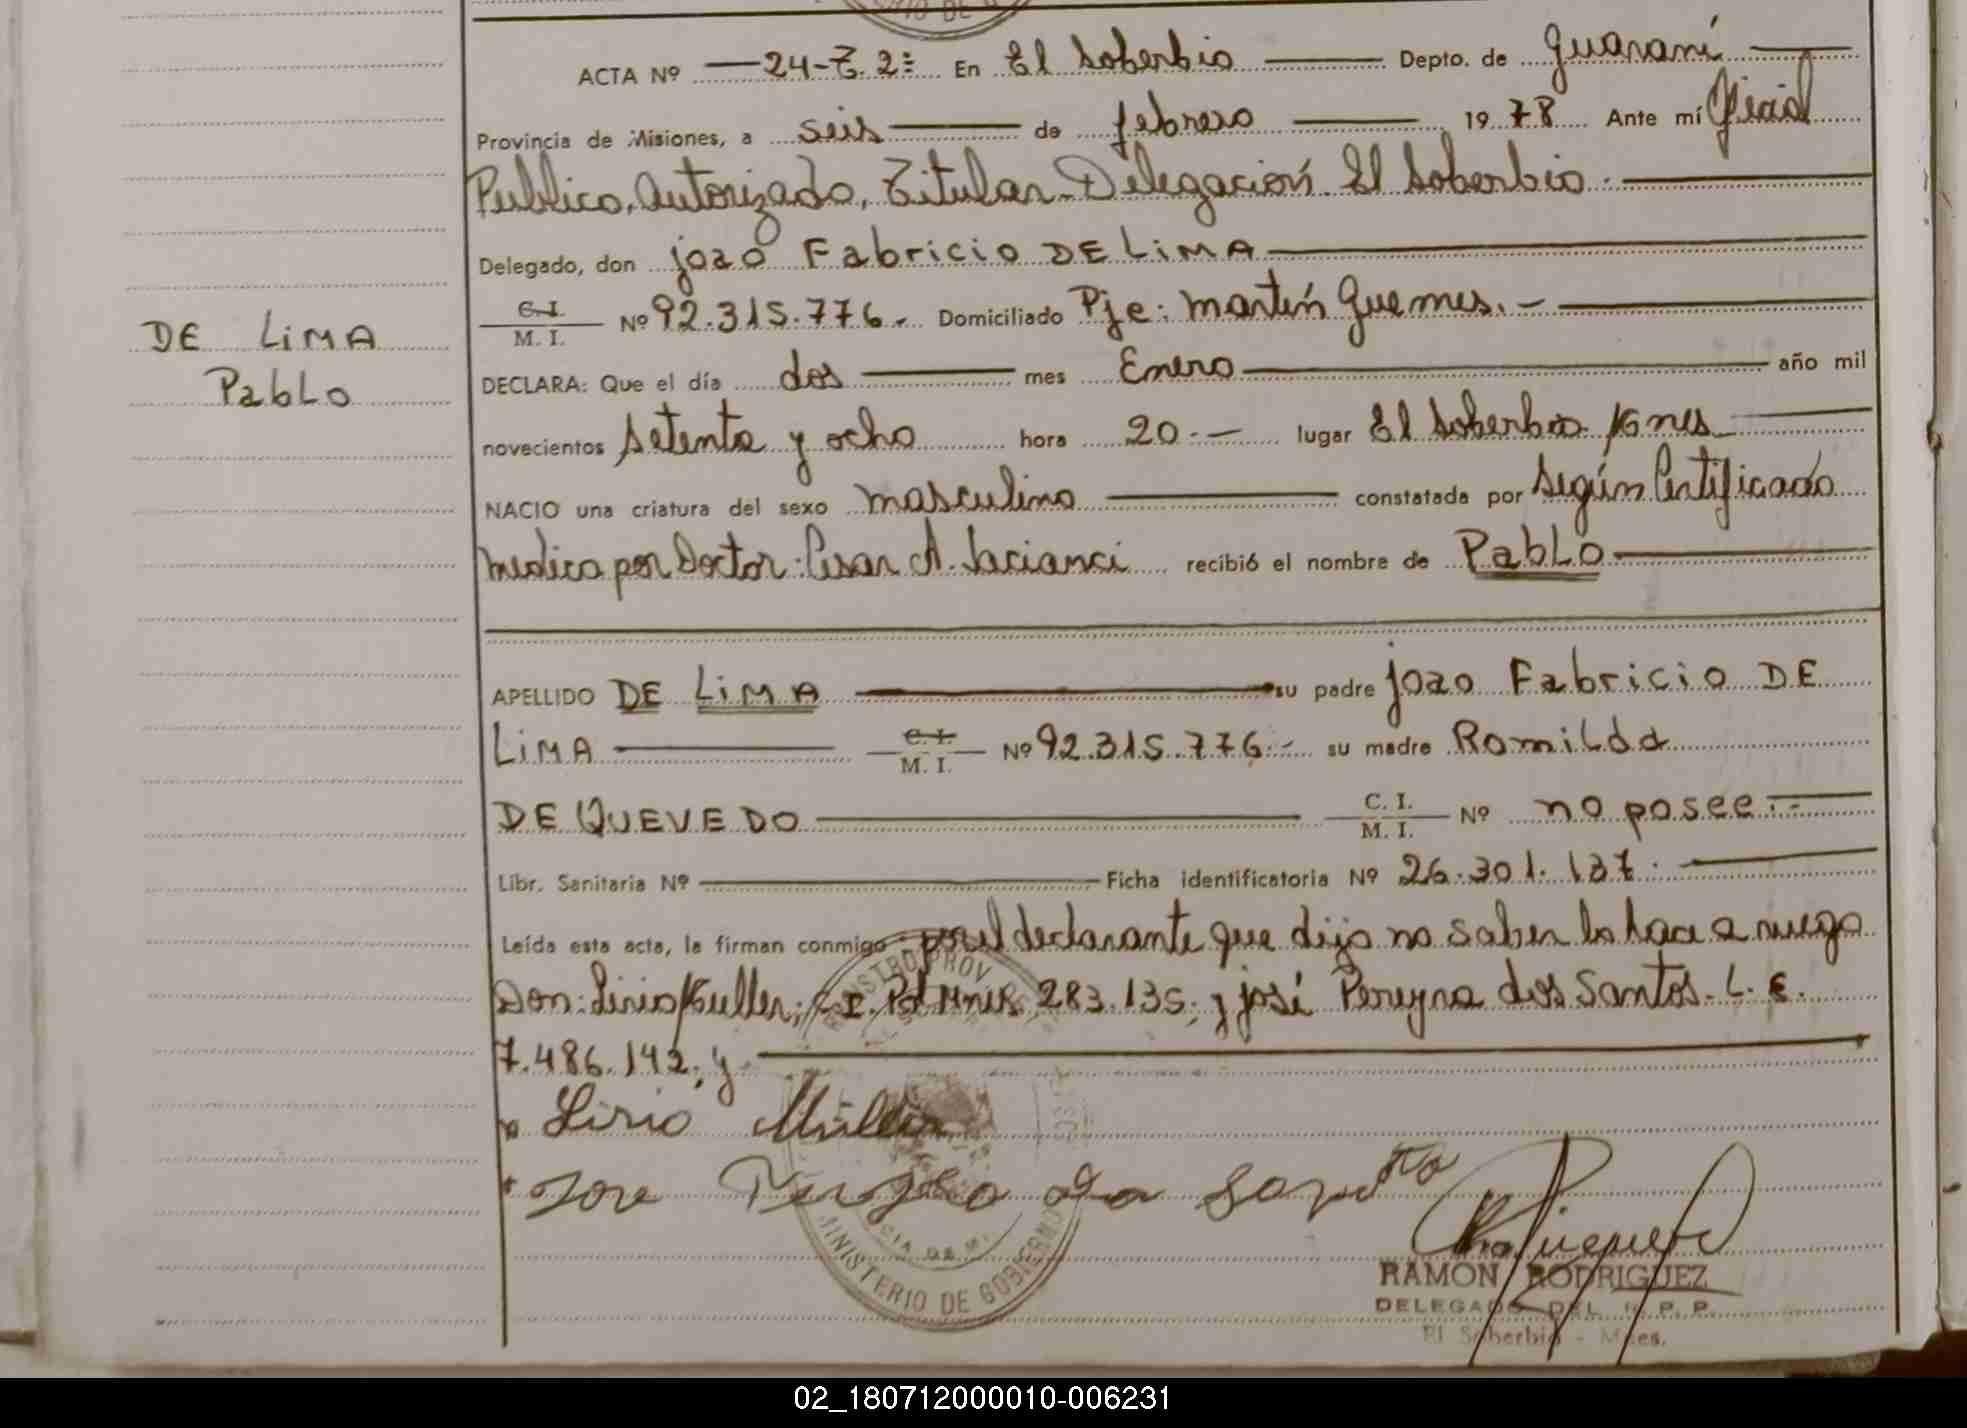 ACTA Nº 24-T. 2= En El Soberbio Depto. de Guaraní
Provincia de Misiones, a seis de febrero 1978 Ante mí Oficial
Publico, Autorizado, Titular Delegación El Soberbio.
Delegado, don joao Fabricio DE LiMA
C.I. / M. I. Nº 92.315.776.- Domiciliado Pje: Martín Guemes.-
DE LiMA
PabLo
DECLARA: Que el día dos mes Enero año mil
novecientos setenta y ocho hora 20.- lugar El Soberbio Mnes
NACIO una criatura del sexo masculino constatada por Según Certificado
medico por Doctor: Cesar A. recibió el nombre de PabLo
APELLIDO DE LiMA su padre joao Fabricio DE
LiMA C.I. / M. I. Nº 92.315.776.- su madre Romilda
DE QUEVEDO C. I. / M. I. Nº no posee.-
Libr. Sanitaria Nº Ficha identificatoria Nº 26.301.137.
Leída esta acta, la firman conmigo por el declarante que dijo no saber lo hace a ruego
Don: Lirio Muller; C.I. Pol Mnes. 283.135; y josé Pereyra dos Santos. L. E.
7.486.142; y
Lirio Müller
Jose
REGISTRO PROV
MINISTERIO DE GOBIERNO
RAMON RODRIGUEZ
DELEGADO DEL R. P. P.
El Soberbio - Mnes.
02_180712000010-006231